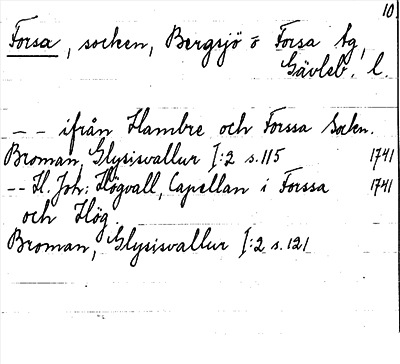 10.
Forsa, socken, Bergsjö o Forsa tg,
Gävleb. l.
-- ifrån Hambre och Forssa Sockn.
Broman, Glysisvallur I:2 s. 115 1741
-- H. Joh: Högvall, Capellan i Forssa 1741
och Hög.
Broman, Glysisvallur I:2 s. 121